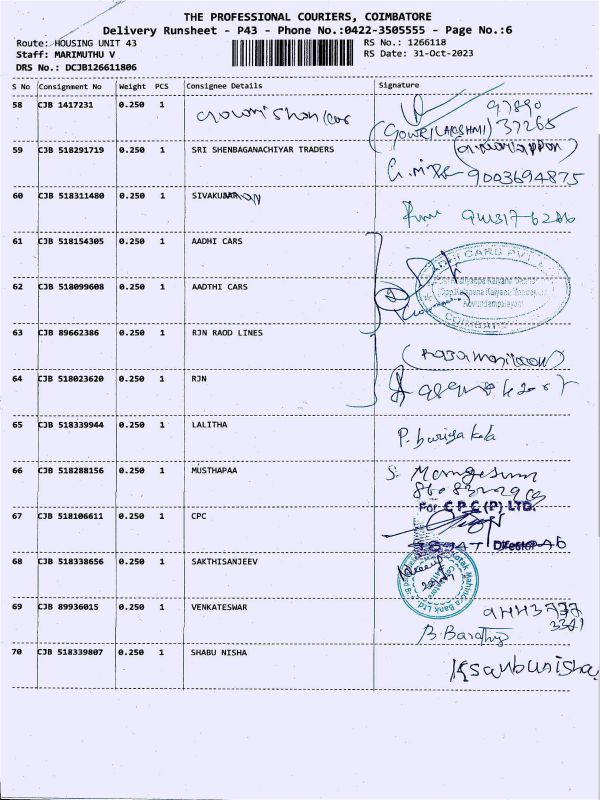 THE PROFESSIONAL COURIERS, COIMBATORE
Delivery Runsheet - P43 - Phone No.:0422-3505555 - Page No.:6
Route: HOUSING UNIT 43
RS No.: 1266118
Staff: MARIMUTHU V
RS Date: 31-Oct-2023
DRS No.: DCJB126611806
S No Consignment No Weight PCS Consignee Details Signature
58 CJB 1417231 0.250 1 97890
(GOWRI LAKSHMI) 37265
59 CJB 518291719 0.250 1 SRI SHENBAGANACHIYAR TRADERS
9003694875
60 CJB 518311480 0.250 1 SIVAKUMAR
61 CJB 518154305 0.250 1 AADHI CARS
62 CJB 518099608 0.250 1 AADTHI CARS
63 CJB 89662386 0.250 1 RJN RAOD LINES
64 CJB 518023620 0.250 1 RJN
65 CJB 518339944 0.250 1 LALITHA
66 CJB 518288156 0.250 1 MUSTHAPAA
For C P C (P) LTD.
67 CJB 518106611 0.250 1 CPC
Director
68 CJB 518338656 0.250 1 SAKTHISANJEEV
Kotak Mahindra Bank Ltd
69 CJB 89936015 0.250 1 VENKATESWAR
70 CJB 518339807 0.250 1 SHABU NISHA